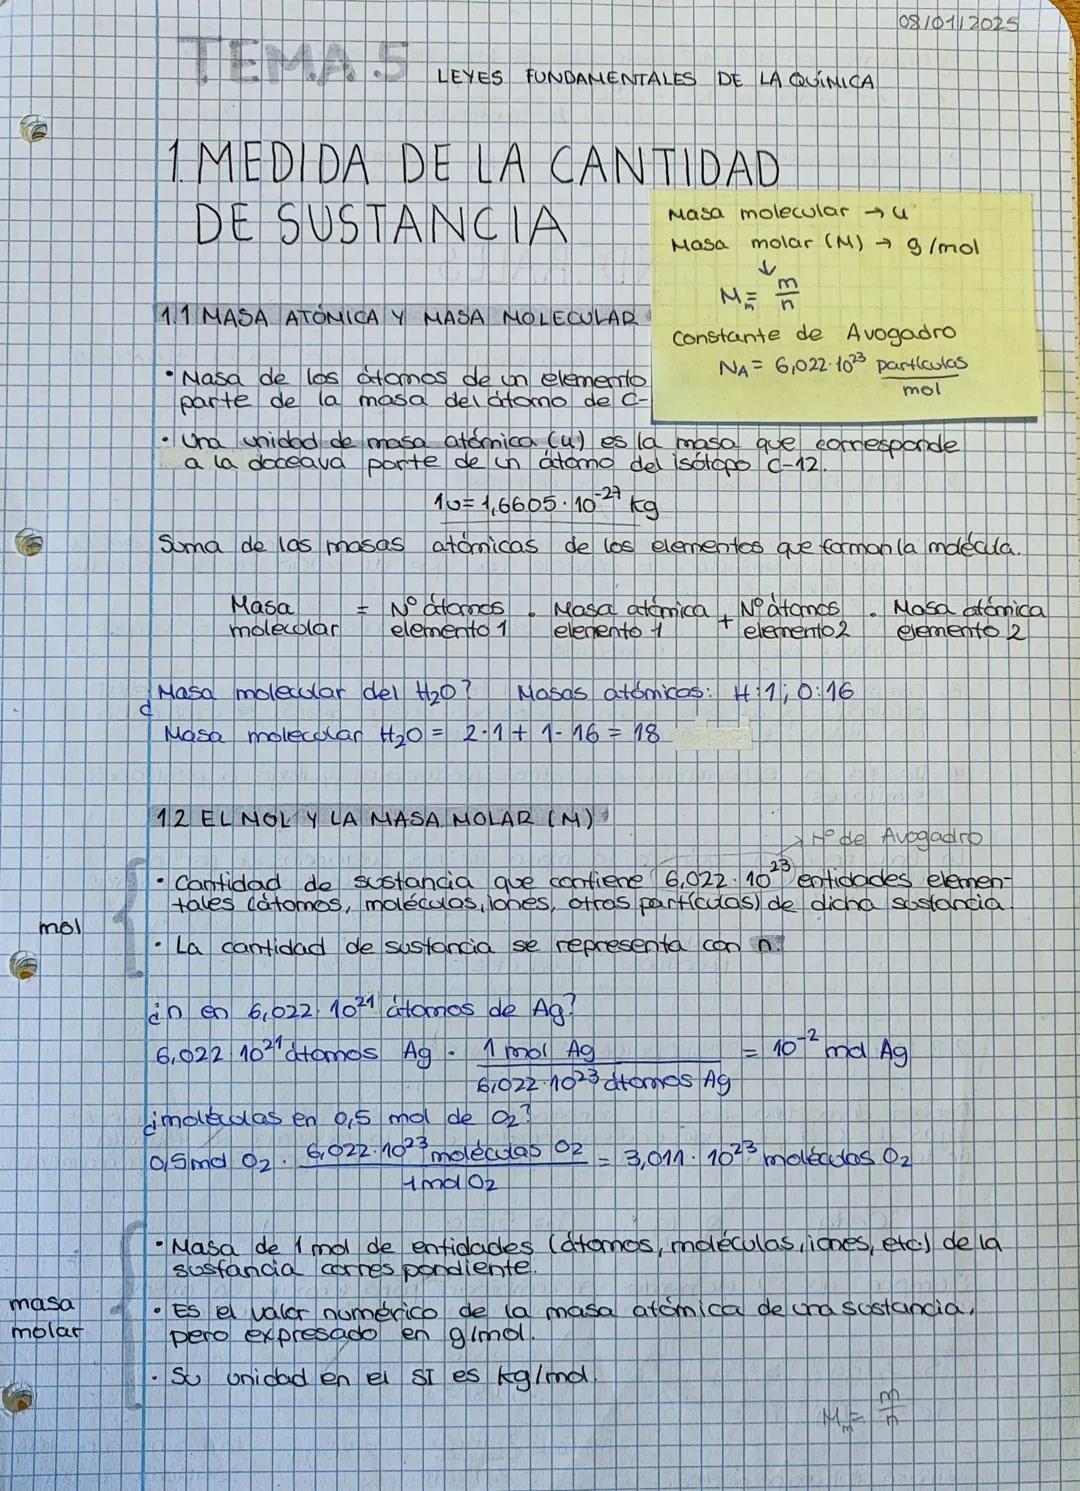 08/01/2025
TEMA 5 LEYES FUNDAMENTALES DE LA QUÍMICA
1. MEDIDA DE LA CANTIDAD
DE SUSTANCIA
Masa molecular → u
Masa molar (M) → g/mol
↓
Mm = m/n
constante de Avogadro
NA = 6,022·10²³ partículas/mol
1.1 MASA ATÓMICA Y MASA MOLECULAR
• Masa de los átomos de un elemento
parte de la masa del átomo de C-
• Una unidad de masa atómica (u) es la masa que corresponde
a la doceava parte de un átomo del isótopo C-12.
1u = 1,6605·10⁻²⁷ kg
Suma de las masas atómicas de los elementos que forman la molécula.
Masa molecular = Nº átomos elemento 1 · Masa atómica elemento 1 + Nº átomos elemento 2 · Masa atómica elemento 2
¿Masa molecular del H₂O? Masas atómicas: H:1; O:16
Masa molecular H₂O = 2·1 + 1·16 = 18
1.2 EL MOL Y LA MASA MOLAR (M)
→ Nº de Avogadro
mol
• Cantidad de sustancia que contiene 6,022·10²³ entidades elemen-
tales (átomos, moléculas, iones, otras partículas) de dicha sustancia.
• La cantidad de sustancia se representa con n.
¿n en 6,022·10²¹ átomos de Ag?
6,022·10²¹ átomos Ag · 1 mol Ag / 6,022·10²³ átomos Ag = 10⁻² mol Ag
¿moléculas en 0,5 mol de O₂?
0,5 mol O₂ · 6,022·10²³ moléculas O₂ / 1 mol O₂ = 3,011·10²³ moléculas O₂
masa
molar
• Masa de 1 mol de entidades (átomos, moléculas, iones, etc) de la
sustancia correspondiente.
• Es el valor numérico de la masa atómica de una sustancia,
pero expresado en g/mol.
• Su unidad en el SI es kg/mol.
Mm = m/n